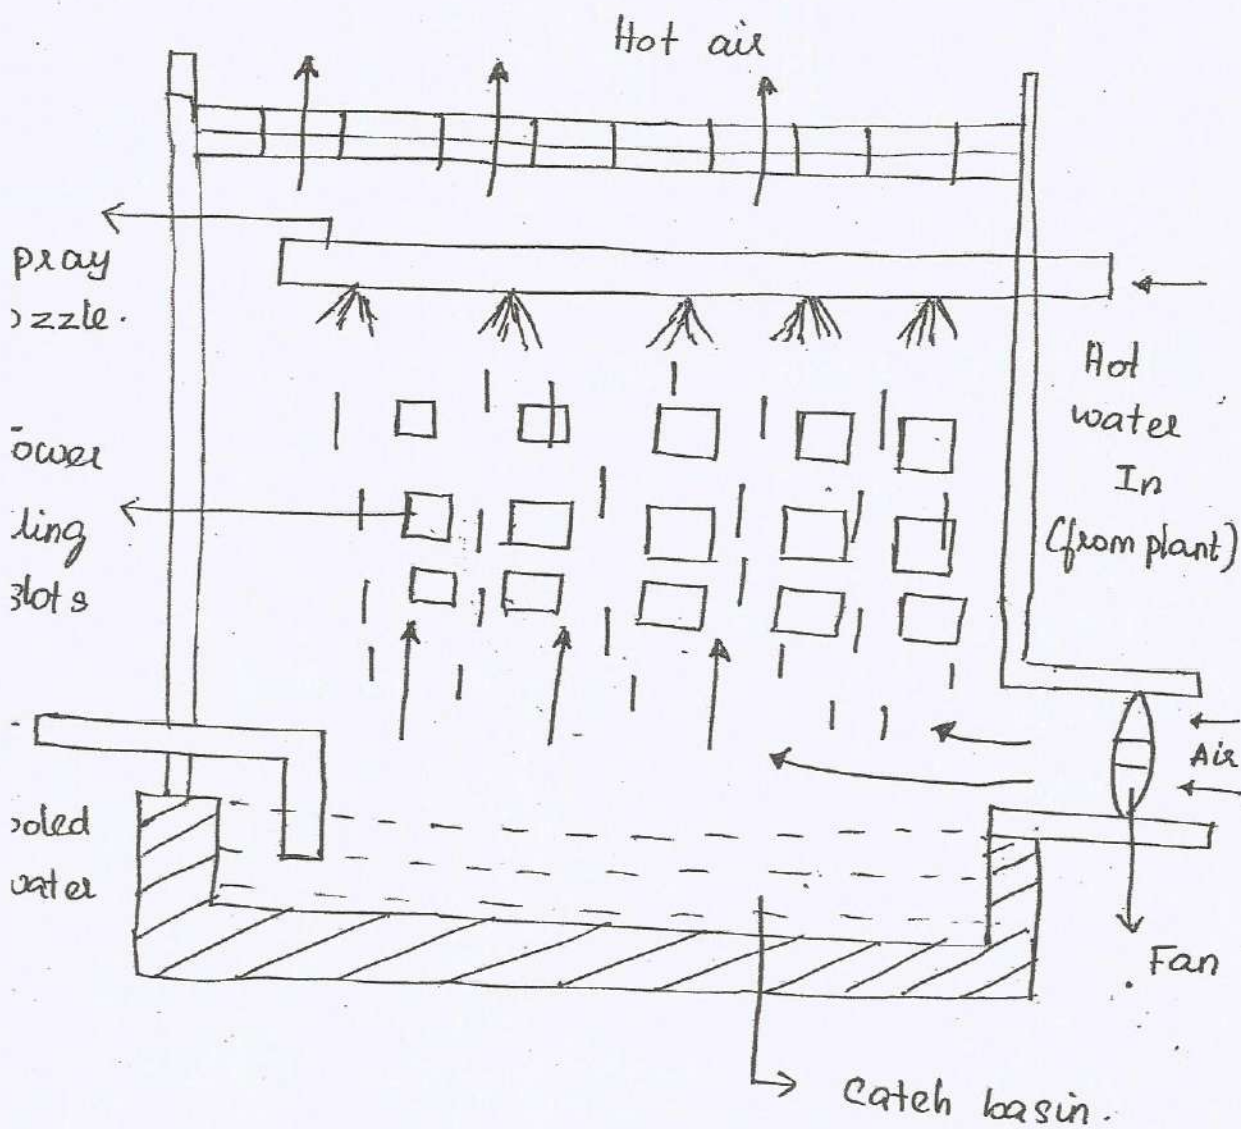 Hot air
pray
ozzle.
Hot
water
In
(from plant)
ower
ling
slots
Air
ooled
water
Fan
Catch basin.